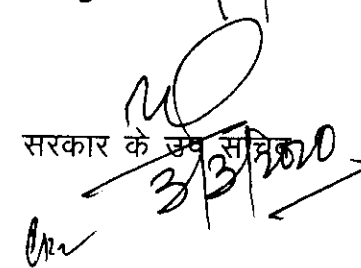 सरकार के उप सचिव
3/3/2020